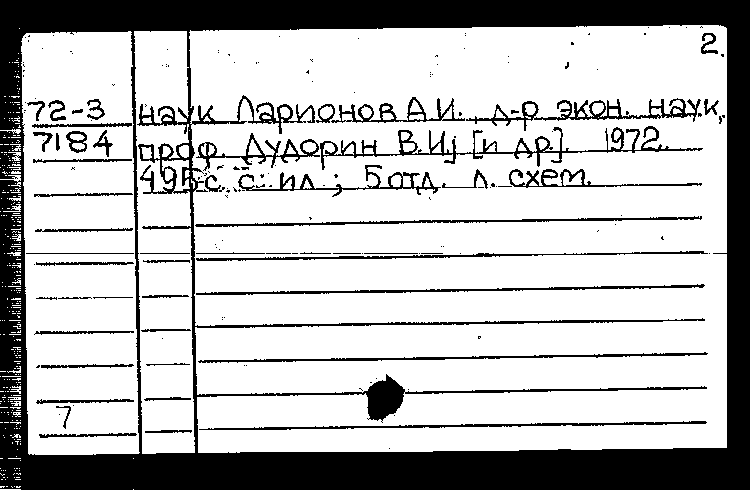 2.
72-3 наук Ларионов А.И., д-р экон. наук,
7184 проф. Дудорин В.И; [и др.]. 1972.
495 с. с ил.; 5 отд. л. схем.
7